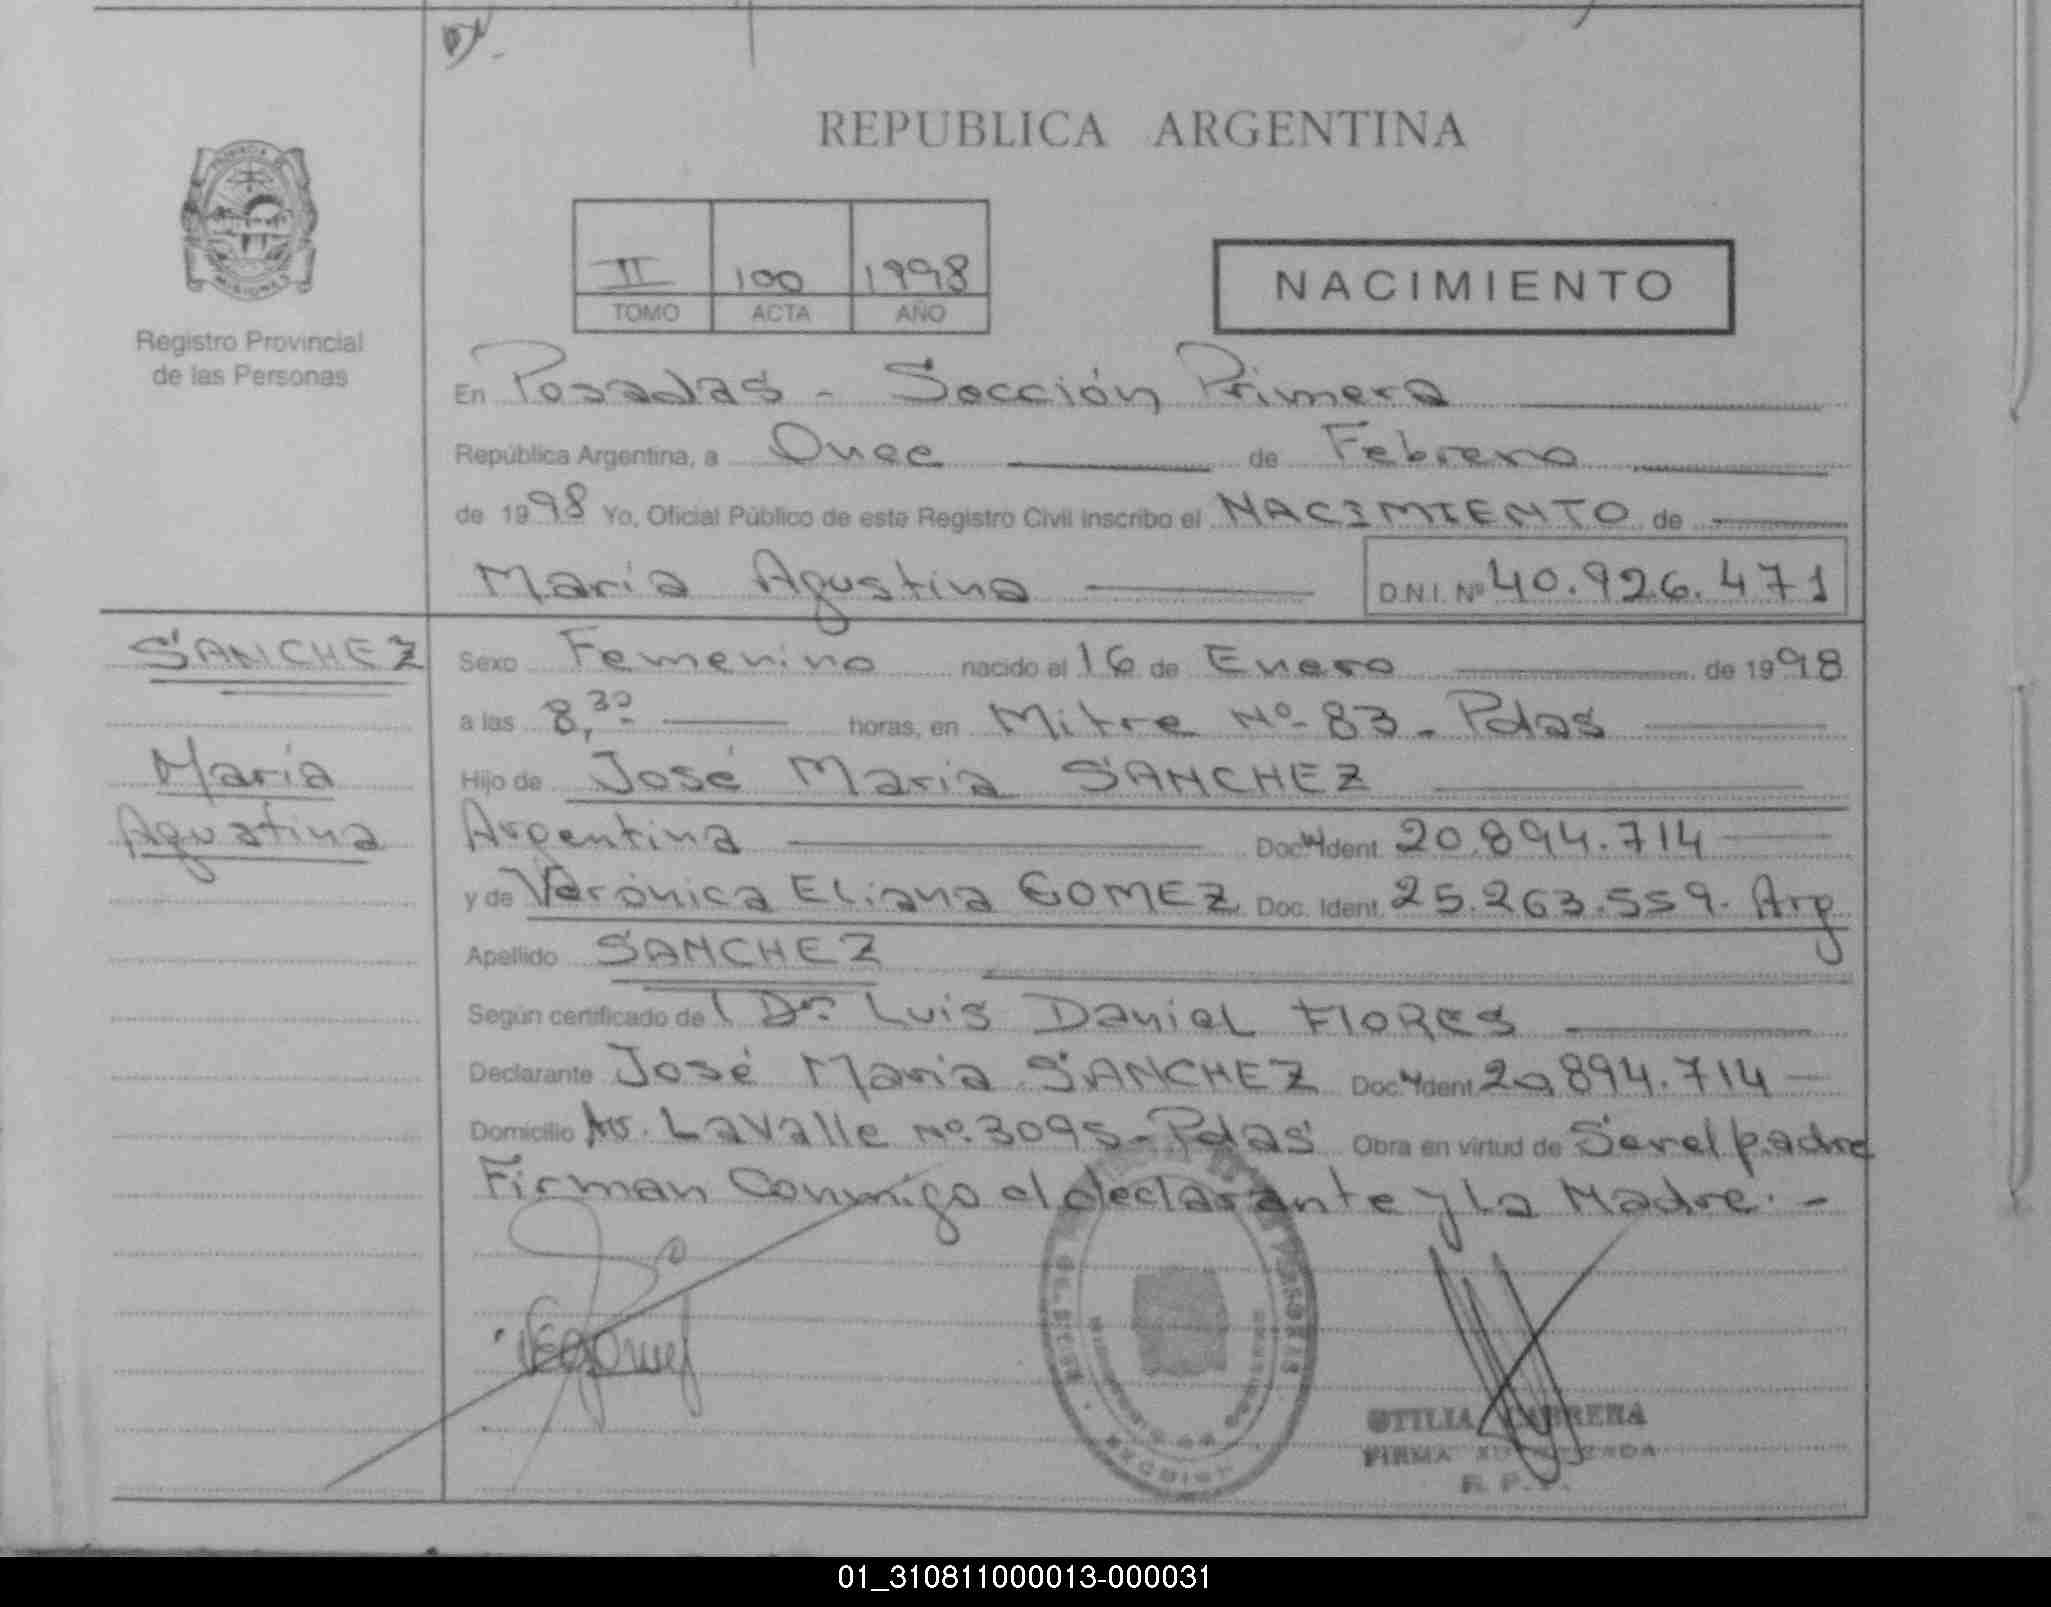 REPUBLICA ARGENTINA
PROVINCIA DE
MISIONES
Registro Provincial
de las Personas
II 100 1998
TOMO ACTA AÑO
NACIMIENTO
En Posadas - Sección Primera
República Argentina, a Once de Febrero
de 1998 Yo, Oficial Público de este Registro Civil inscribo el NACIMIENTO de
María Agustina D.N.I. Nº 40.926.471
SANCHEZ
María
Agustina
Sexo Femenino nacido el 16 de Enero de 1998
a las 8,30 horas, en Mitre Nº 83 - Pdas
Hijo de José María SANCHEZ
Argentina Doc. Ident. 20.894.714
y de Verónica Eliana GOMEZ Doc. Ident. 25.263.559. Arg
Apellido SANCHEZ
Según certificado del Dr. Luis Daniel FLORES
Declarante José María SANCHEZ Doc. Ident. 20.894.714
Domicilio Av. Lavalle Nº 3095 - Pdas Obra en virtud de Ser el padre
Firman Conmigo el declarante y La Madre. -
OTILIA CABRERA
FIRMA AUTORIZADA
R. P. P.
01_310811000013-000031